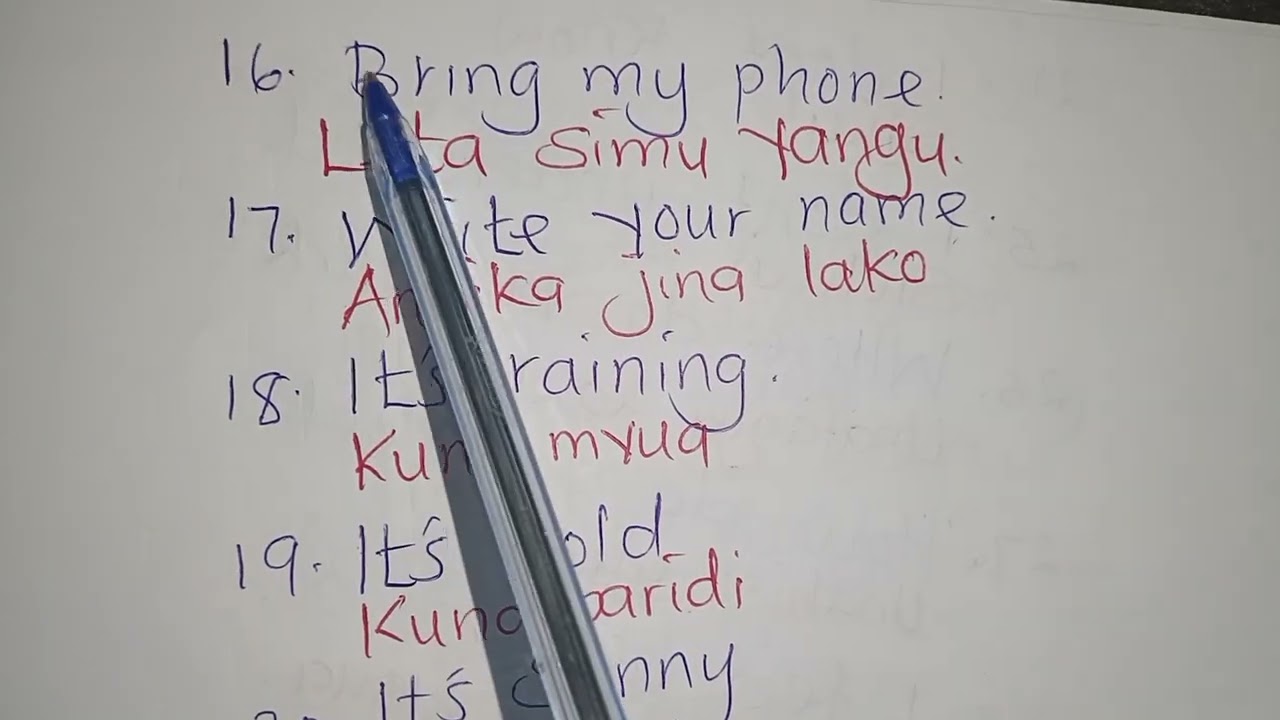 16. Bring my phone.
Lota simu yangu.
17. Write your name.
Andika jina lako
18. It's raining.
Kuna myua
19. It's cold
Kuna baridi
It's sunny